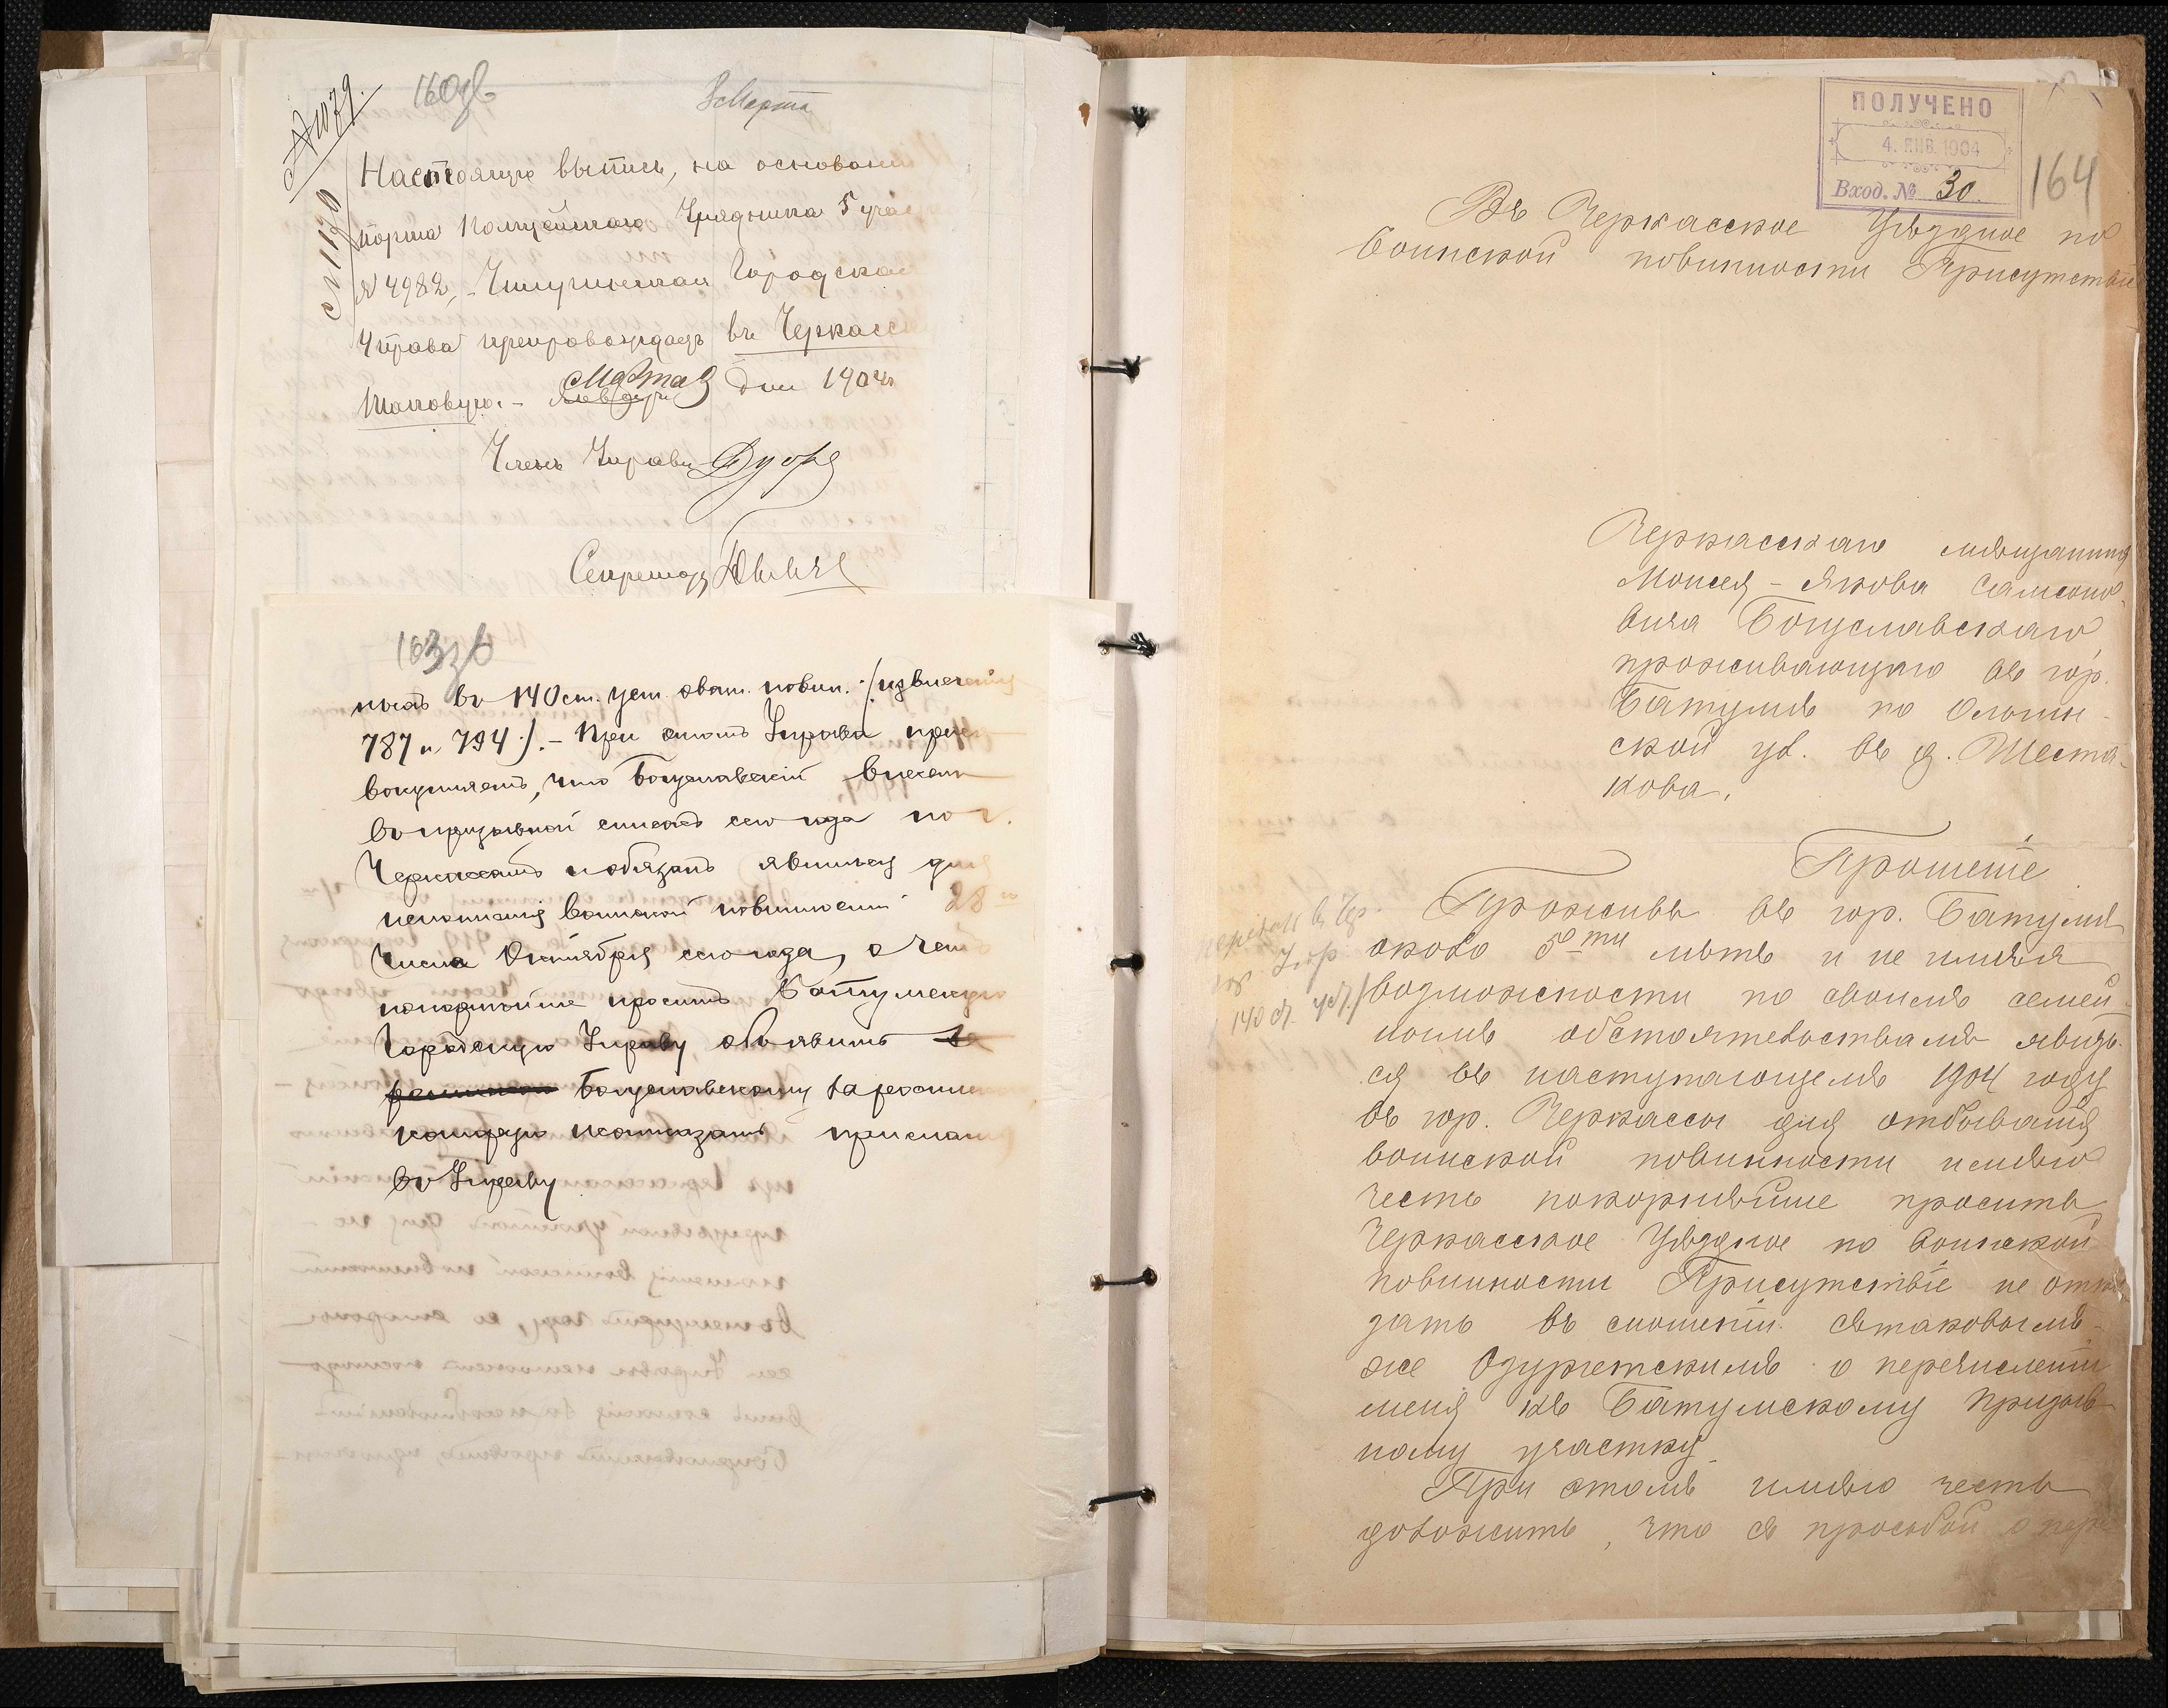 № 1079.
160 об
3 Марта
№ 1130
Настоящую выпись, на основании
рорта Полицейскаго Урядника 5 учас
№ 4982, - Чигиринская Городская
Управа препровождаетъ въ Черкасск
Марта
января дня 1904 г
Членъ Управы
Секретарь
163 об
въ 140 ст. уст. о воин. повин. /извлеченія
787 и 794/. - При этомъ Управа прис
вокупляетъ, что Богуславскій внесенъ
въ призывной списокъ сего года по г.
Черкассамъ и обязанъ явиться для
исполненія воинской повинности 28 го
числа Октября сего года, о чемъ
покорнѣйше проситъ Батумскую
Городскую Управу объявить
Богуславскому
и таковую не отказать прислать
въ Управу
ПОЛУЧЕНО
4. ЯНВ. 1904
Вход. № 30.
164
Въ Черкасское Уѣздное по
воинской повинности Присутствіе
Черкасскаго мѣщанина
Моисея - Якова Самсоно-
вича Богуславскаго
проживающаго въ гор.
Батумѣ по Ольгин-
ской ул. въ д. Шеста-
кова.
Прошеніе
Проживъ въ гор. Батумѣ
около 5ти лѣтъ и не имѣя
возможности по своимъ семей-
нымъ обстоятельствамъ явить-
ся въ наступающемъ 1904 году
въ гор. Черкассы для отбыванія
воинской повинности имѣю
честь покорнѣйше просить
Черкасское Уѣздное по воинской
повинности Присутствіе не отка
зать въ сношеніи съ таковымъ-
же Озургетскимъ о перечисленіи
меня къ Батумскому призыв-
ному участку.
При этомъ имѣю честь
доложить, что съ просьбой о пере
140 ст. уст./